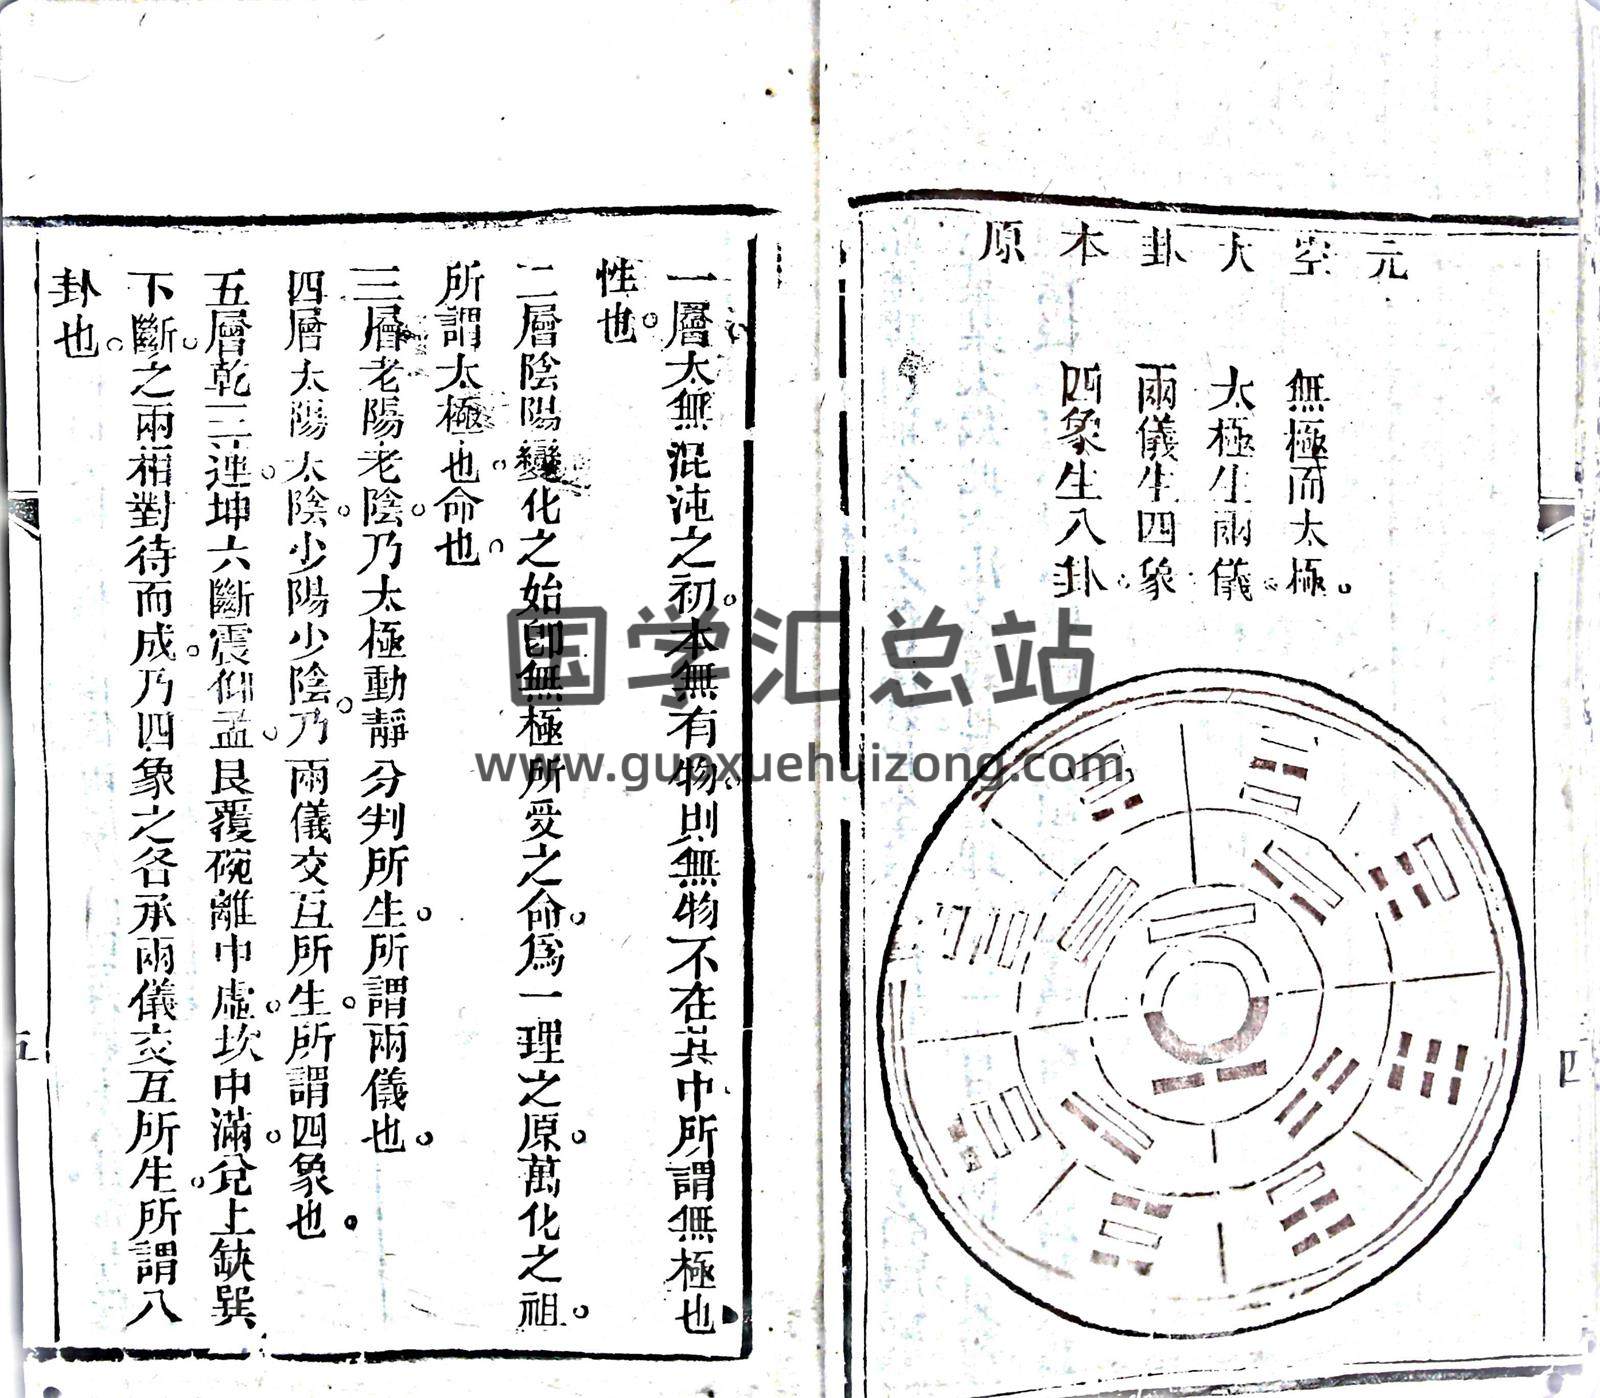 元空大卦本原
無極而太極。
太極生兩儀。
兩儀生四象
四象生八卦。
四
一層太無混沌之初。本無有物。則無物不在其中。所謂無極也
性也。
二層陰陽變化之始。卽無極所受之命。爲一理之原。萬化之祖。
所謂太極也。命也。
三層老陽老陰。乃太極動靜分判所生。所謂兩儀也。
四層太陽太陰。少陽少陰。乃兩儀交互所生。所謂四象也。
五層乾三連。坤六斷。震仰盂。艮覆碗。離中虛。坎中滿。兌上缺。巽
下斷。之兩相對待而成。乃四象之各承兩儀交互所生。所謂八
卦也。
五
国学汇总站
www.guoxuehuizong.com